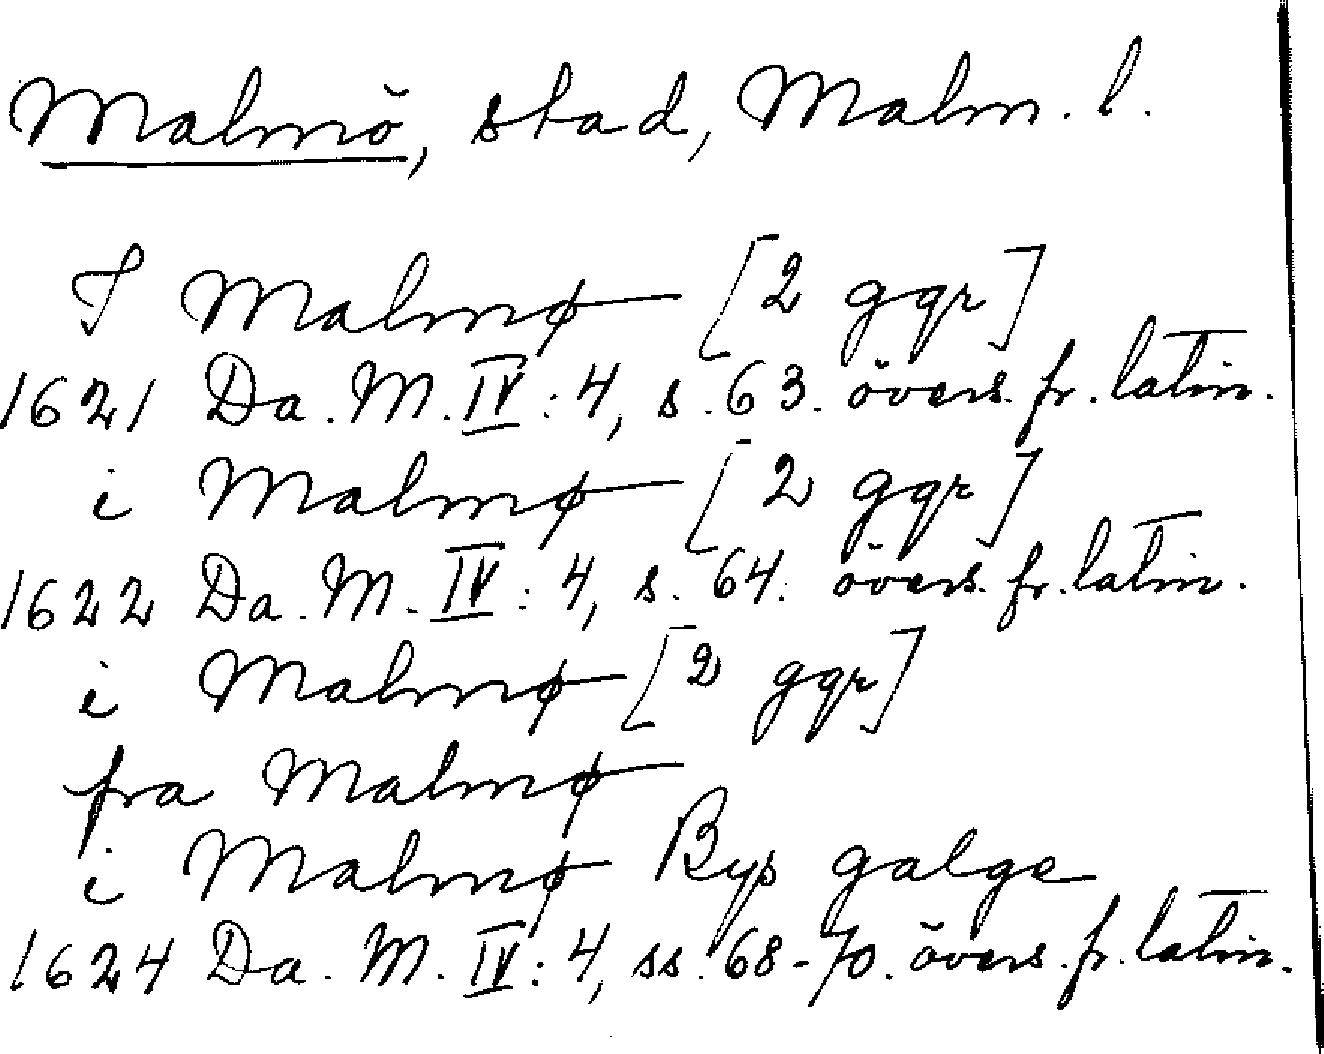 Malmö, stad, Malm. l.
I Malmø [2 ggr]
1621 Da. M. IV: 4, s. 63. övers. fr. latin.
i Malmø [2 ggr]
1622 Da. M. IV: 4, s. 64. övers. fr. latin.
i Malmø [2 ggr]
fra Malmø
i Malmø Bys galge
1624 Da. M. IV: 4, ss. 68-70. övers. fr. latin.